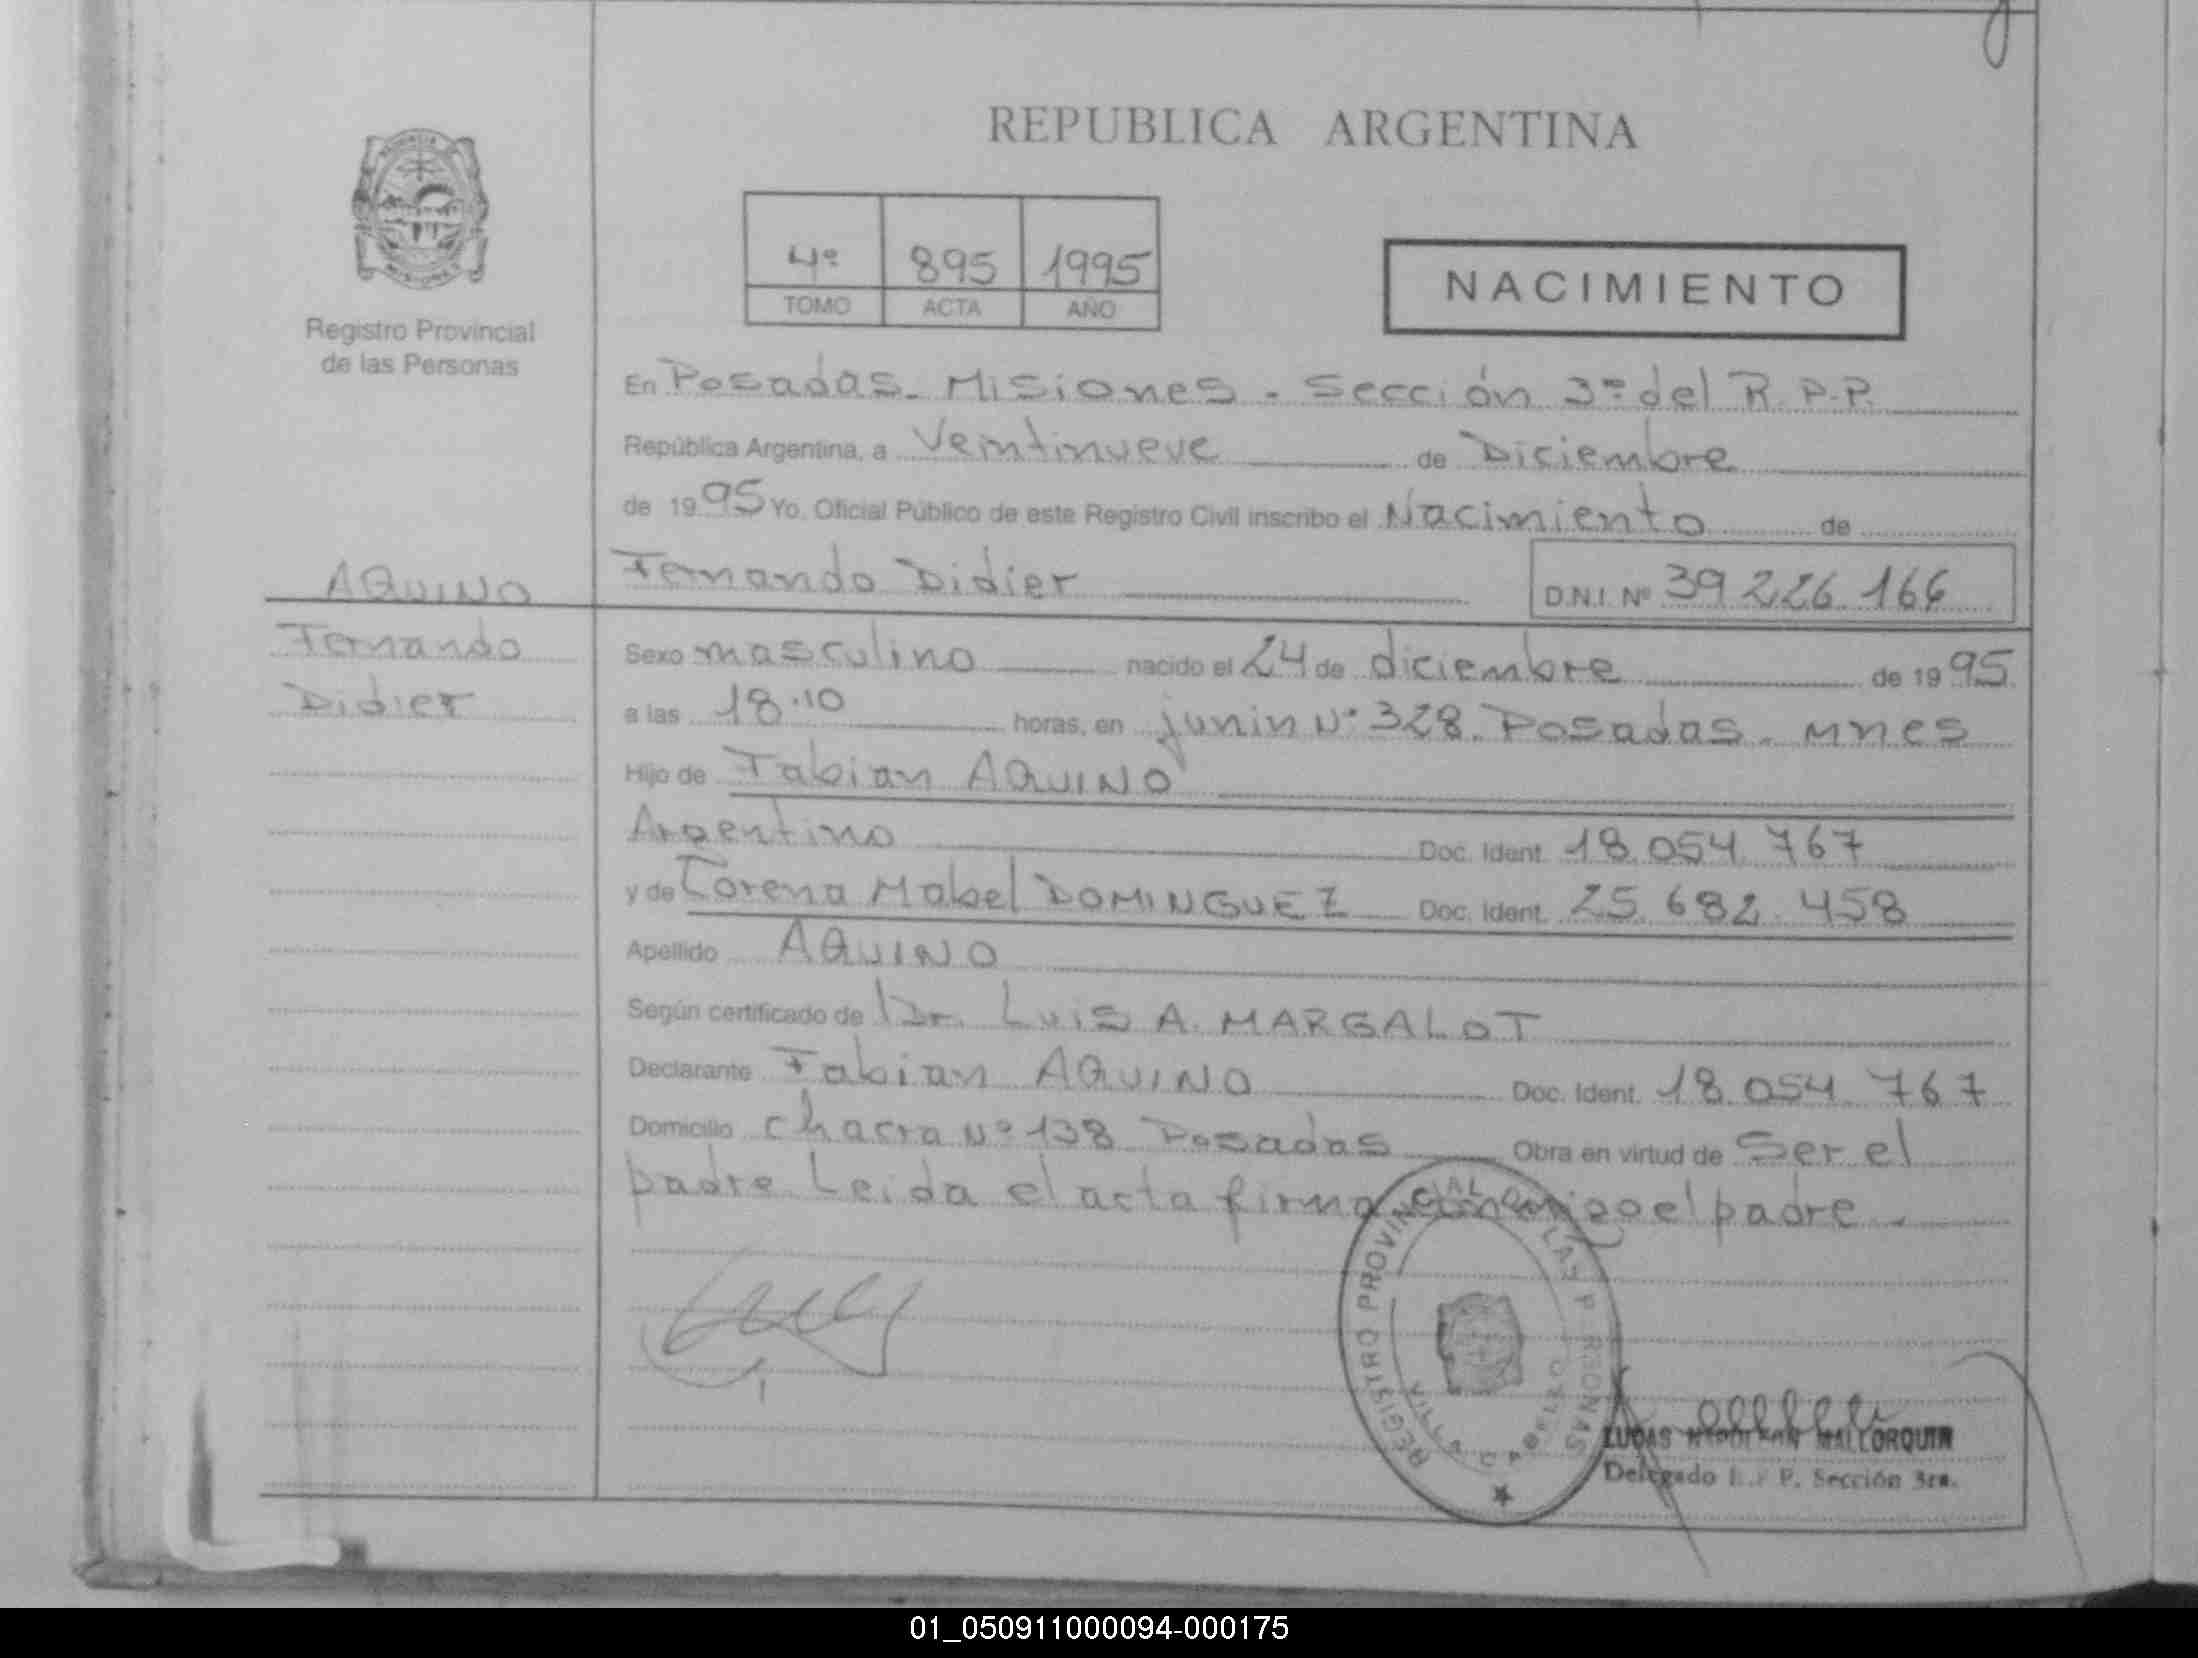 REPUBLICA ARGENTINA
Registro Provincial
de las Personas
4º 895 1995
TOMO ACTA AÑO
NACIMIENTO
En Posadas - Misiones - Sección 3ª del R.P.P.
República Argentina, a Veintinueve de Diciembre
de 1995 Yo, Oficial Público de este Registro Civil inscribo el Nacimiento de
AQUINO
Fernando Didier D.N.I. Nº 39 226 166
Fernando
Didier
Sexo masculino nacido el 24 de diciembre de 1995
a las 18.10 horas, en junin Nº 328 Posadas - Mnes
Hijo de Fabian AQUINO
Argentino Doc. Ident. 18.054.767
y de Lorena Mabel DOMINGUEZ Doc. Ident. 25.682.458
Apellido AQUINO
Según certificado de Dr. Luis A. MARGALOT
Declarante Fabian AQUINO Doc. Ident. 18.054.767
Domicilio chacra Nº 138 Posadas Obra en virtud de Ser el
padre Leida el acta firma conmigo el padre -
REGISTRO PROVINCIAL DE LAS PERSONAS
VILLA CABELLO
LUCAS NAPOLEON MALLORQUIN
Delegado R.P.P. Sección 3ra.
01_050911000094-000175